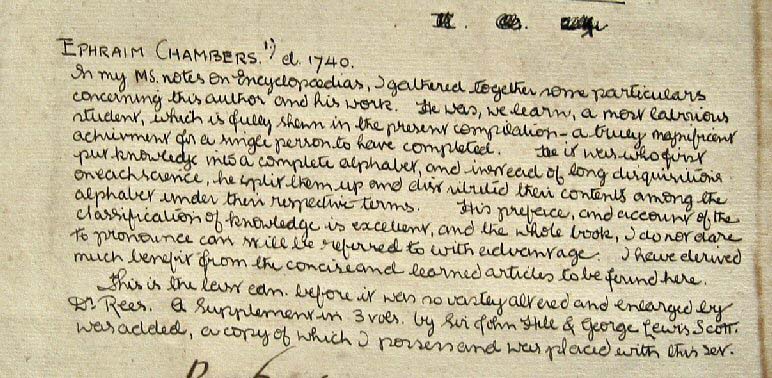 EPHRAIM CHAMBERS. 1) d. 1740.
In my MS. notes on Encyclopædias, I gathered together some particulars
concerning this author and his work. He was, we learn, a most labrious
student, which is fully shewn in the present compilation – a truly magnificent
achivment for a single person to have completed. He it was who first
put knowledge into a complete alphabet, and instead of long disquisitions
on each science, he split them up and distributed their contents among the
alphabet under their respective terms. His preface, and account of the
classification of knowledge is excellent, and the whole book, I do not dare
to pronounce can still be referred to with advantage. I have derived
much benefit from the concise and learned articles to be found here.
This is the last edn. before it was so vastly altered and enlarged by
Dr Rees. A Supplement in 3 vols. by Sir John Hill & George Lewis Scott.
was added, a copy of which I possess and was placed with this set.